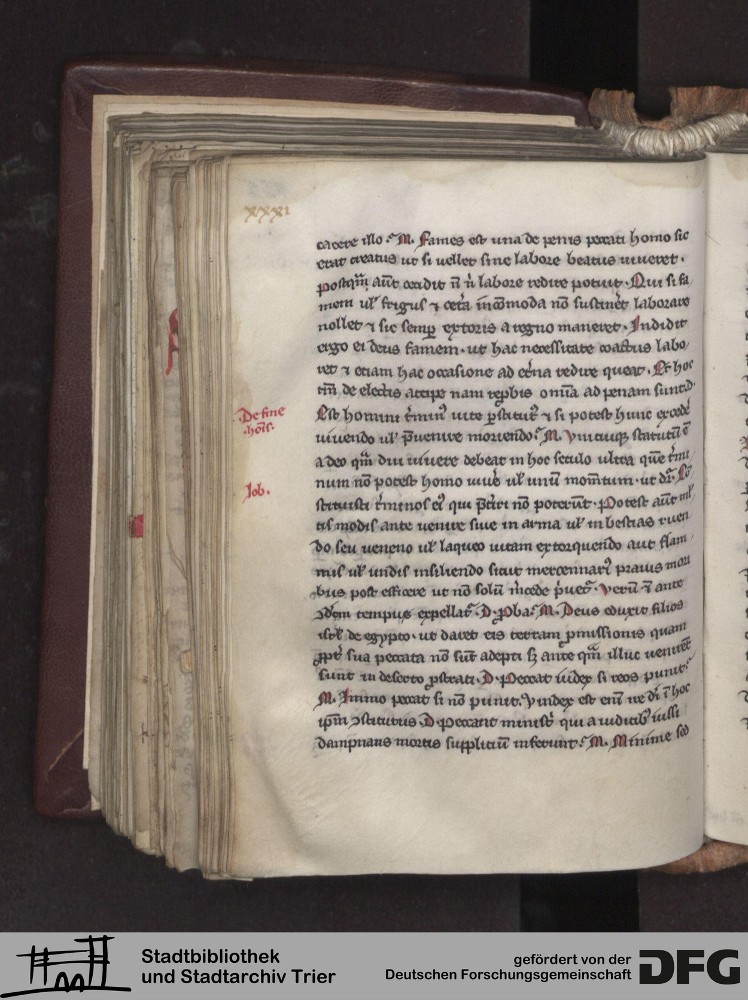 xxxi
carere illo. M. Fames est una de penis peccati homo sic
erat creatus ut si vellet sine labore beatus viveret.
postqm̄ aut̄ cecidit n̄ n̄ labore redire potuit. Qui si fa
mem ul' frigus ⁊ cetā incōmoda nō sustinēt laborare
nollet ⁊ sic semp̄ extoris a regno maneret. Indidit
ergo ei deus famem. ut hac necessitate coactus labo
ret ⁊ etiam hac occasione ad etn̄a redire queat. Et hoc
tm̄ de electis accipe nam rep̄bis om̄ia ad penam sunt. D.
Est homini t̄min' vite p̄stitut' ⁊ si potest hunc excedē
vivendo ul' p̄venire moriendo. M. Unicuiq; statutū ē
adeo qm̄ diu vivere debeat in hoc seculo ultra quē t̄mi
num nō potest homo viv̄e ul' unū mom̄tum. ut dr̄. Cō
stituisti t̄minos ei' qui p̄t̄iri nō poterūt. Potest aut̄ ml'
tis modis ante venire sive in arma ul' in bestias ruen
do seu veneno ul' laqueo vitam extorquendo aut flam
mis ul' undis insiliendo sicut mercennari' pravis mori
bus post efficere ut nō solū m̄cede p̄vet̄. verū ⁊ ante
ɔdc̄m tempus expellat̄. D. p̄ba. M. Deus eduxit filios
isrl' de egypto. ut daret eis terram p̄missionis quam
p̄pt̄ sua peccata nō sūt adepti s; ante qm̄ illuc venirēt
sunt in deserto p̄strati. D. Peccat iudex si reos punit.
M. Immo peccat si nō punit. vindex est eni īre di ī hoc
ip̄m ɔstitutus. D. Peccant ministri qui a iudicib' iussi
dampnatis mortis suppliciū inferunt. M. Minime sed
De fine
hōis.
Job.
Stadtbibliothek
und Stadtarchiv Trier
gefördert von der
Deutschen Forschungsgemeinschaft
DFG